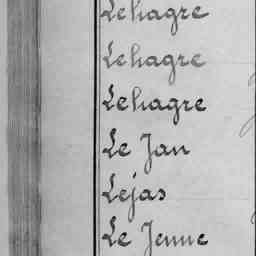 Lehagre
Lehagre
Lehagre
Le Jan
Lejas
Le Jeune